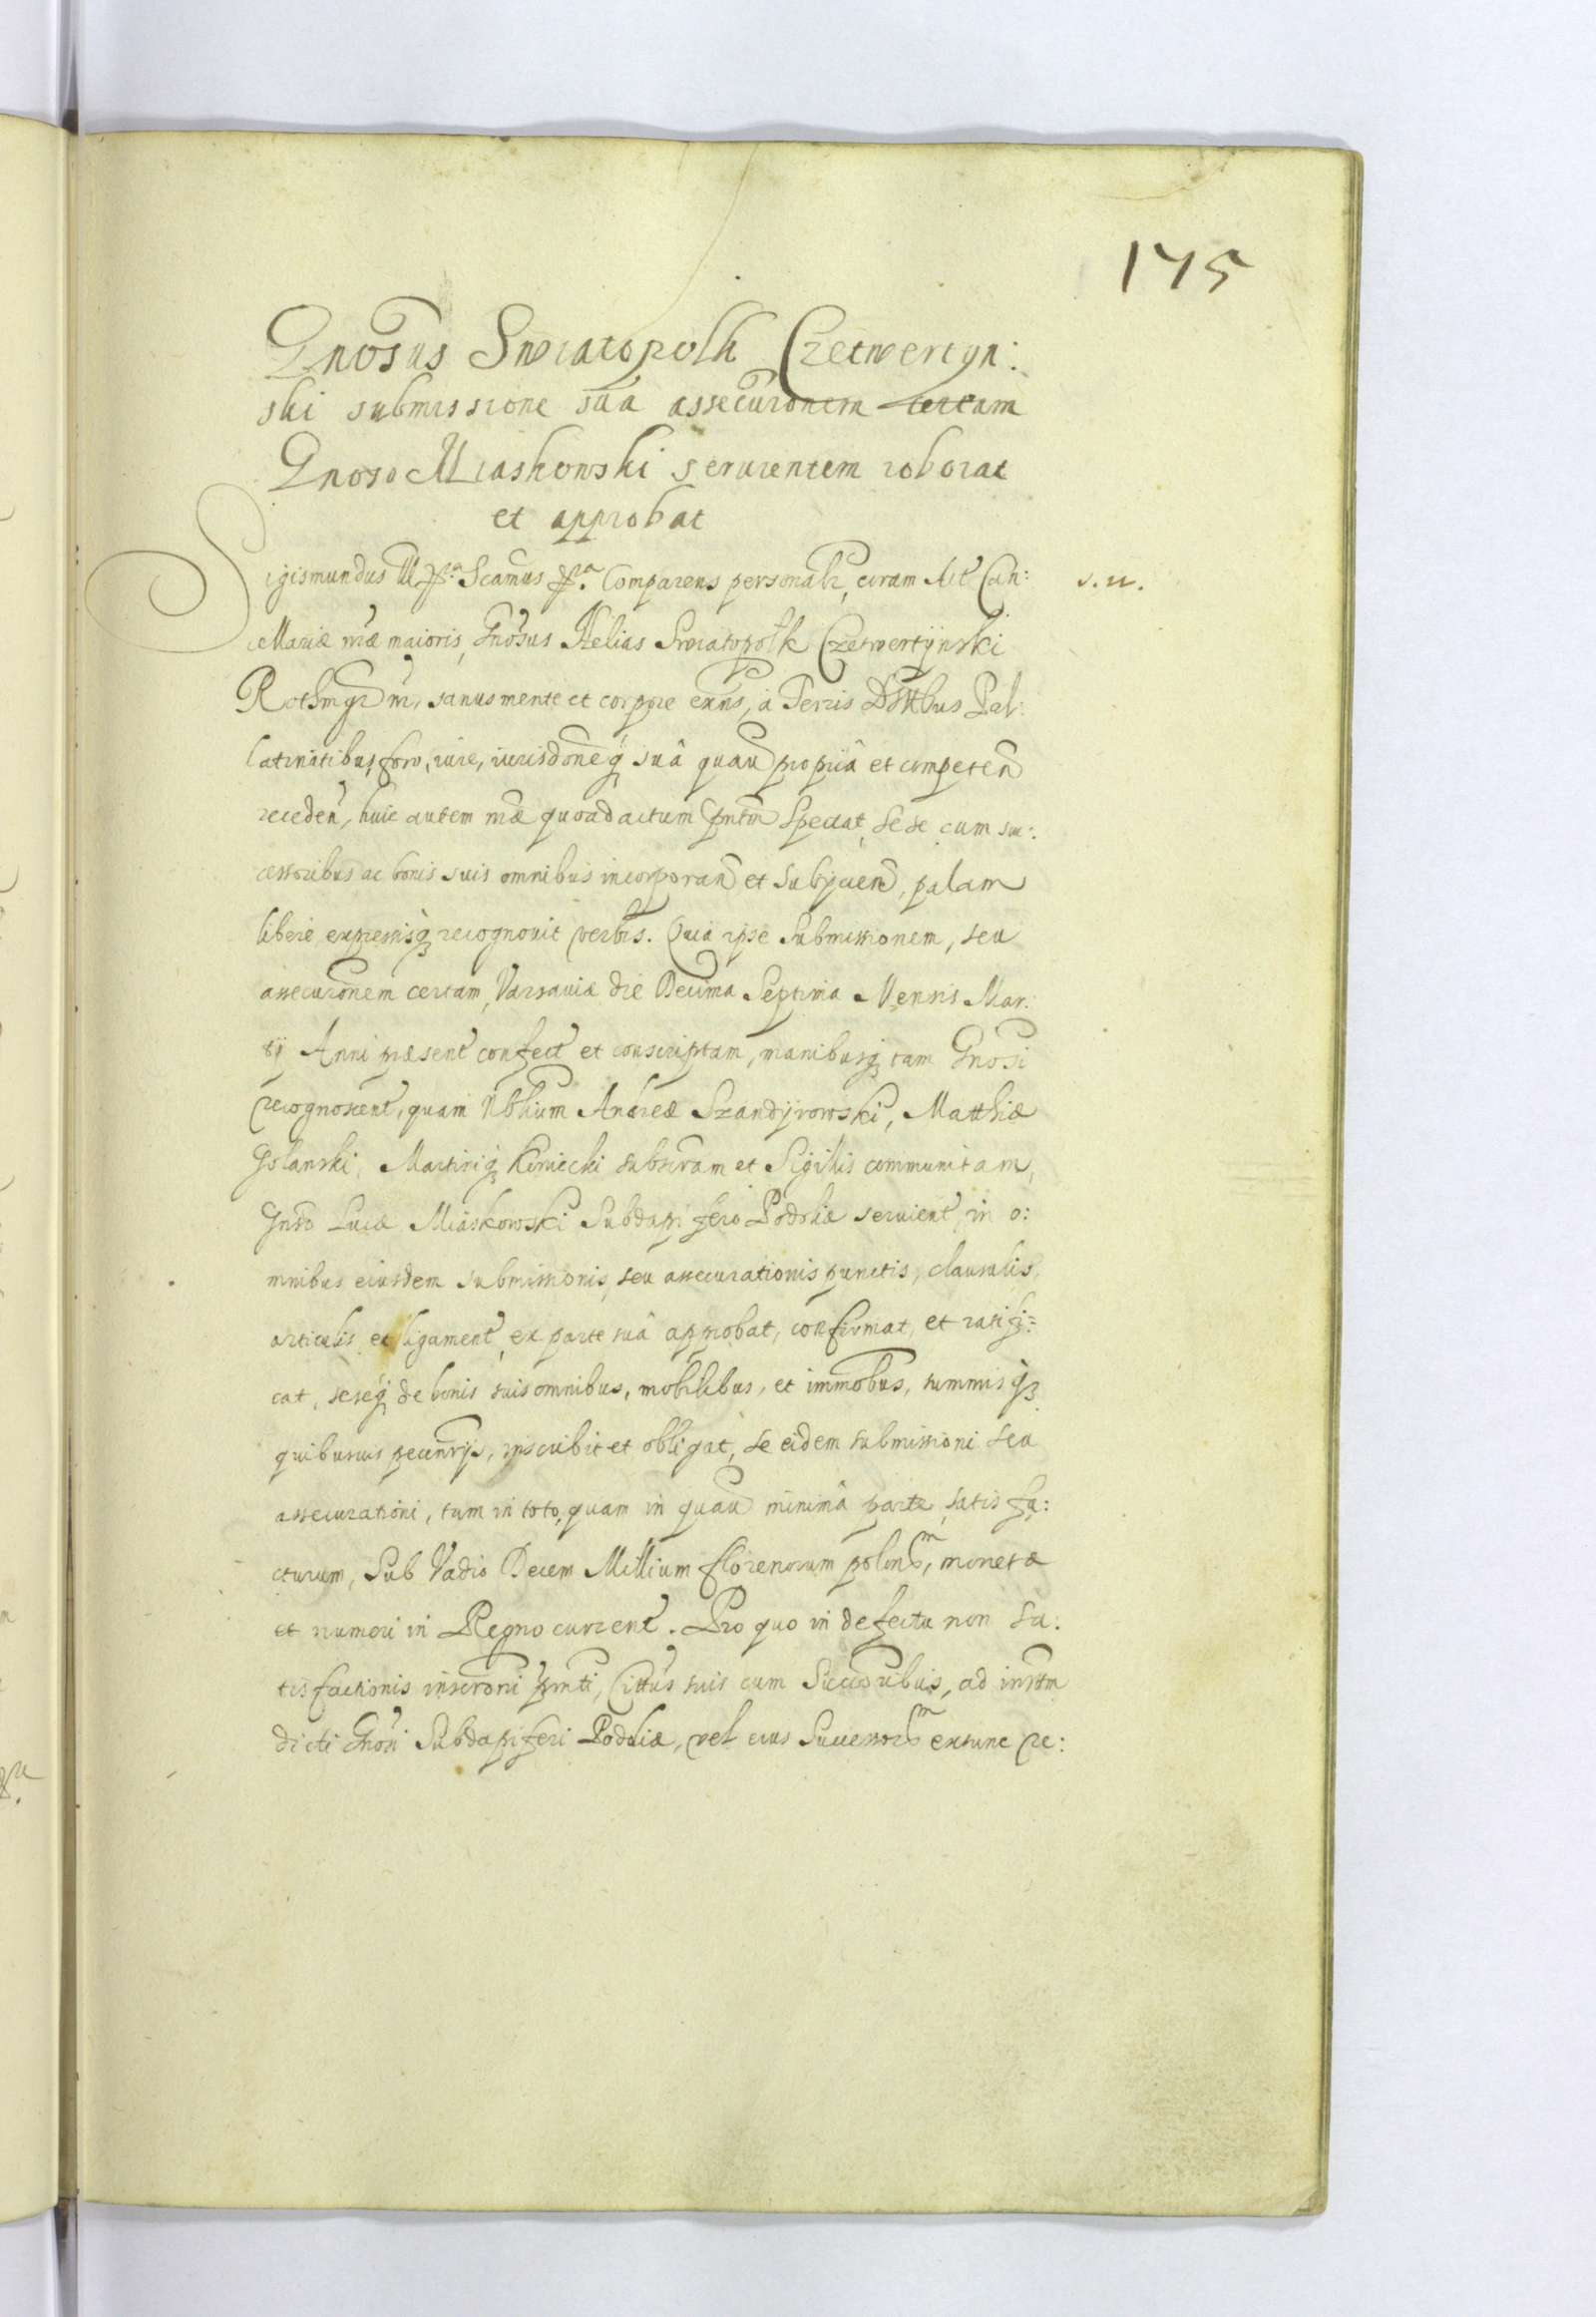 175
Gnosus Swiatopolk Czetwertyn:
ski submissione sua assecuronem certam
Gnoso Miaskowski seruientem roborat
et approbat
Sigismundus III &ra Scamus &ra. Comparens personalr, coram Act Can: s. n.
cellariæ mæ maioris, Gnosus Helias Swiatopolk Czetwertÿnski
Rothmgr m, sanus mente et corpore exns, à Terris Dsttbus Pal:
latinatibus, foro, iure, iurisdoneq suâ quau propriâ et competen
receden, huic autem mæ quoad actum pntm spectat, sese cum suc:
cessoribus ac bonis suis omnibus incorporan et subijcien, palam
libere expressisq recognouit verbis. Quia ipse submissionem, seu
assecuronem certam, Varsauiæ die Decima Septima Mensis Mar:
tij Anni præsent confect et conscriptam, manibusq tam Gnosi
recognoscent, quam Nblium Andreæ Szandÿrowski, Matthiæ
Golanski, Martiniq Koniecki subscram et Sigillis communitam,
Gnso Lucæ Miaskowski Subdapifero Podoliæ seruient, in o:
mnibus eiusdem submissionis, seu assecurationis punctis, clausulis,
articulis et ligament, ex parte suâ approbat, confirmat, et ratifi:
cat, seseq de bonis suis omnibus, mobilibus, et immobus, summisq
quibusuis pecunrijs, inscribit et obligat, se eidem submissioni seu
assecurationi, tum in toto, quam in quau minimâ parte, satis fa:
cturum, Sub Vadio Decem Millium florenorum polonrm, monetæ
et numeri in Regno current. Pro quo in defectu non sa:
tisfactionis inscroni pnti, Cittus suis cum Succoribus, ad instm
dicti Gnosi Subdapiferi Podoliæ, vel eius Successorm extunc re: